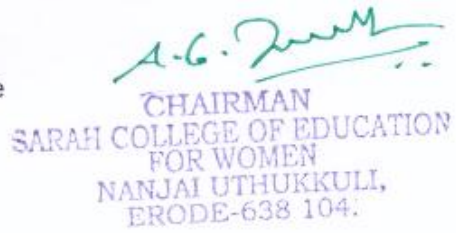 A.G.
e
CHAIRMAN
SARAH COLLEGE OF EDUCATION
FOR WOMEN
NANJAI UTHUKKULI,
ERODE-638 104.